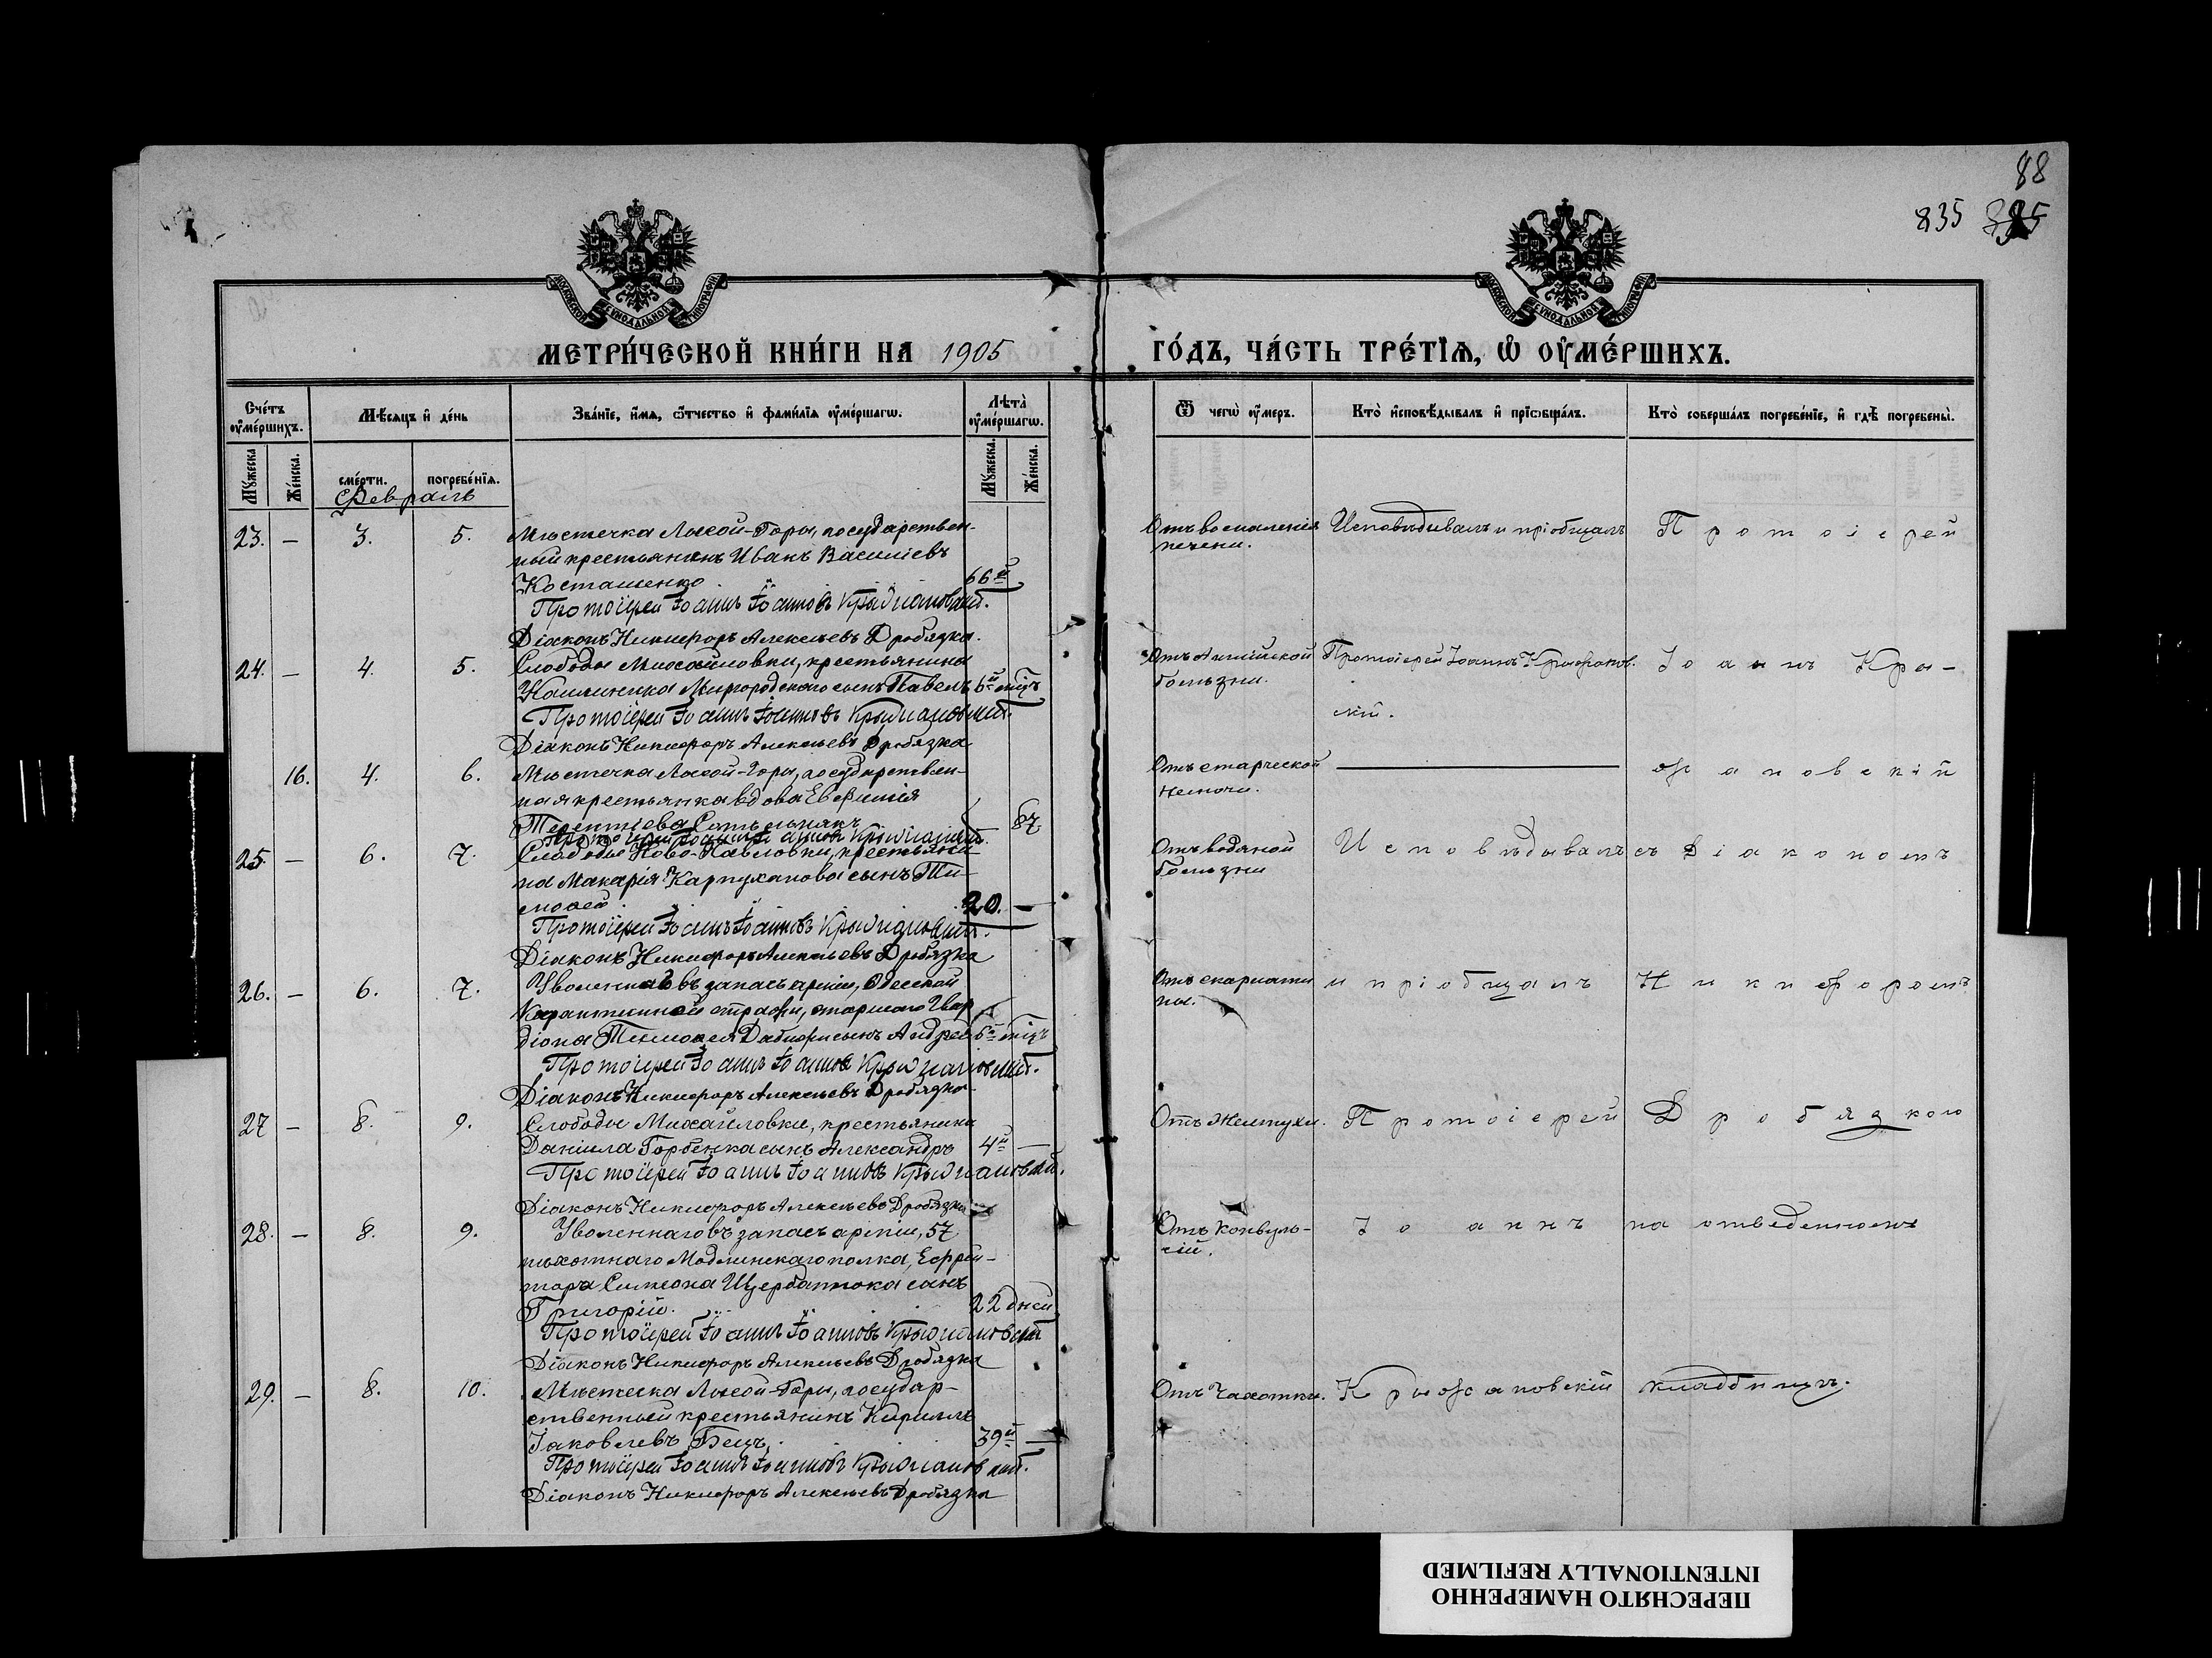 88
835
МОСКОВСКОЙ СѴНОДАЛЬНОЙ ТИПОГРАФІИ
МОСКОВСКОЙ СѴНОДАЛЬНОЙ ТИПОГРАФІИ
МЕТРИ́ЧЕСКОЙ КНИ́ГИ НА 1905 ГО́ДЪ, ЧА́СТЬ ТРЕ́ТІѦ, Ѡ҆ ОУ҆МЕ́РШИХЪ.
Сче́тъ оу҆ме́ршихъ.
Мѣ́сяцъ и҆ де́нь
Зва́нїе, и҆́мя, ѻ҆́тчество и҆ фами́лїя оу҆ме́ршагѡ.
Лѣта̀ оу҆ме́ршагѡ.
Ѿ чегѡ̀ оу҆́меръ.
Кто̀ и҆сповѣ́дывалъ и҆ прїѡбща́лъ.
Кто̀ соверша́лъ погребе́нїе, и҆ гдѣ̀ погребены̀.
Мꙋ́жеска
Же́нска.
сме́рти.
погребе́нїя.
Мꙋ́жеска.
Же́нска.
Февраль
23. — 3. 5. Мѣстечка Лысой-Горы, государствен-
ный крестьянинъ Иванъ Василіевъ
Косташенко 66й
Протоіерей Іоаннъ Іоанновъ Крыжановскій.
Діаконъ Никифоръ Алексѣевъ Дробязка.
Отъ воспаленія
печени.
Исповѣдывалъ и пріобщалъ
Протоіерей
24. — 4. 5. Слободы Михайловки, крестьянина
Миргородскаго сынъ Павелъ 6й мѣц
Протоіерей Іоаннъ Іоанновъ Крыжановскій.
Діаконъ Никифоръ Алексѣевъ Дробязка
Отъ Англійской
болѣзни.
Протоіерей Іоаннъ Крыжанов-
скій.
Іоаннъ Кры-
16. 4. 6. Мѣстечка Лысой-Горы, государствен-
ная крестьянка вдова Евфимія
Терентіева 87
Протоіерей Іоаннъ Іоанновъ Крыжановскій.
Отъ старческой
немочи.
жановскій
25. — 6. 7. Слободы Ново-Павловки, крестьяни-
на Макарія Карпуханова сынъ Ти-
моѳей 20. —
Протоіерей Іоаннъ Іоанновъ Крыжановскій.
Діаконъ Никифоръ Алексѣевъ Дробязка
Отъ водяной
болѣзни
Исповѣдывалъ
съ Діакономъ
26. — 6. 7. Уволеннаго въ запасъ арміи, Одесской
Карантинной стражи, старшаго Гвар
діона Тимоѳея сынъ Андрей 6й мѣц
Протоіерей Іоаннъ Іоанновъ Крыжановскій.
Діаконъ Никифоръ Алексѣевъ Дробязка.
Отъ скарлати
ны.
и пріобщалъ
Никифоромъ
27 — 8. 9. Слободы Михайловки, крестьянина
Даніила Горбенка сынъ Александръ 4й —
Протоіерей Іоаннъ Іоанновъ Крыжановскій.
Діаконъ Никифоръ Алексѣевъ Дробязка
Отъ Желтухи.
Протоіерей
Дробязкою
28. — 8. 9. Уволеннаго въ запасъ арміи, 57
пѣхотнаго Модлинскаго полка, Ефрей-
тора Симеона Щербатюка сынъ
Григорій. 22 дней
Протоіерей Іоаннъ Іоанновъ Крыжановскій
Діаконъ Никифоръ Алексѣевъ Дробязка
Отъ Конвуль-
сій.
Іоаннъ
на отведенномъ
29. — 8. 10. Мѣстечка Лысой-Горы, государ-
ственный крестьянинъ Кириллъ
Іаковлевъ Бецъ. 39й —
Протоіерей Іоаннъ Іоанновъ Крыжановскій.
Діаконъ Никифоръ Алексѣевъ Дробязка
Отъ Чахотки.
Крыжановскій
кладбищѣ.
ПЕРЕСНЯТО НАМЕРЕННО
INTENTIONALLY REFILMED